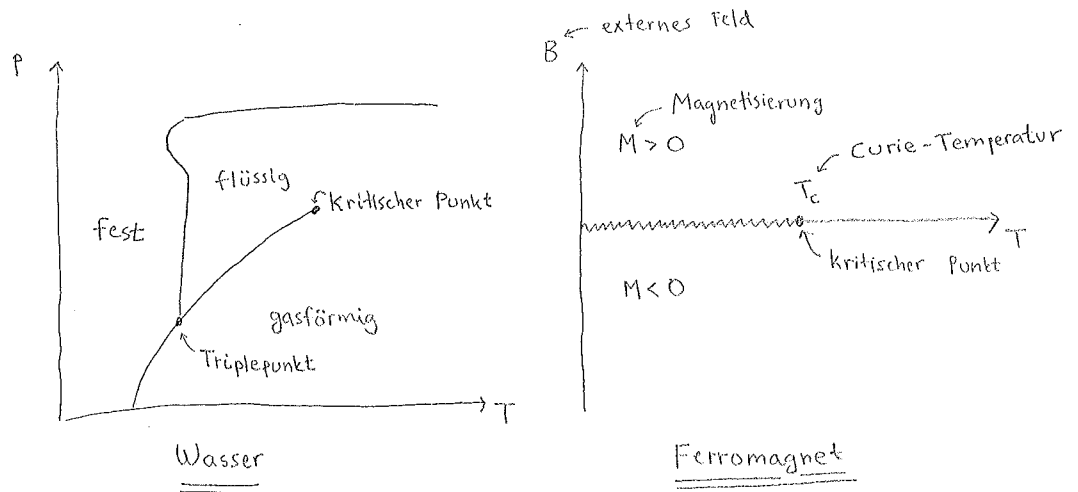 P
fest
flüssig
Kritischer Punkt
gasförmig
Triplepunkt
T
Wasser
B
externes Feld
Magnetisierung
M > 0
Curie-Temperatur
T_c
T
Kritischer Punkt
M < 0
Ferromagnet